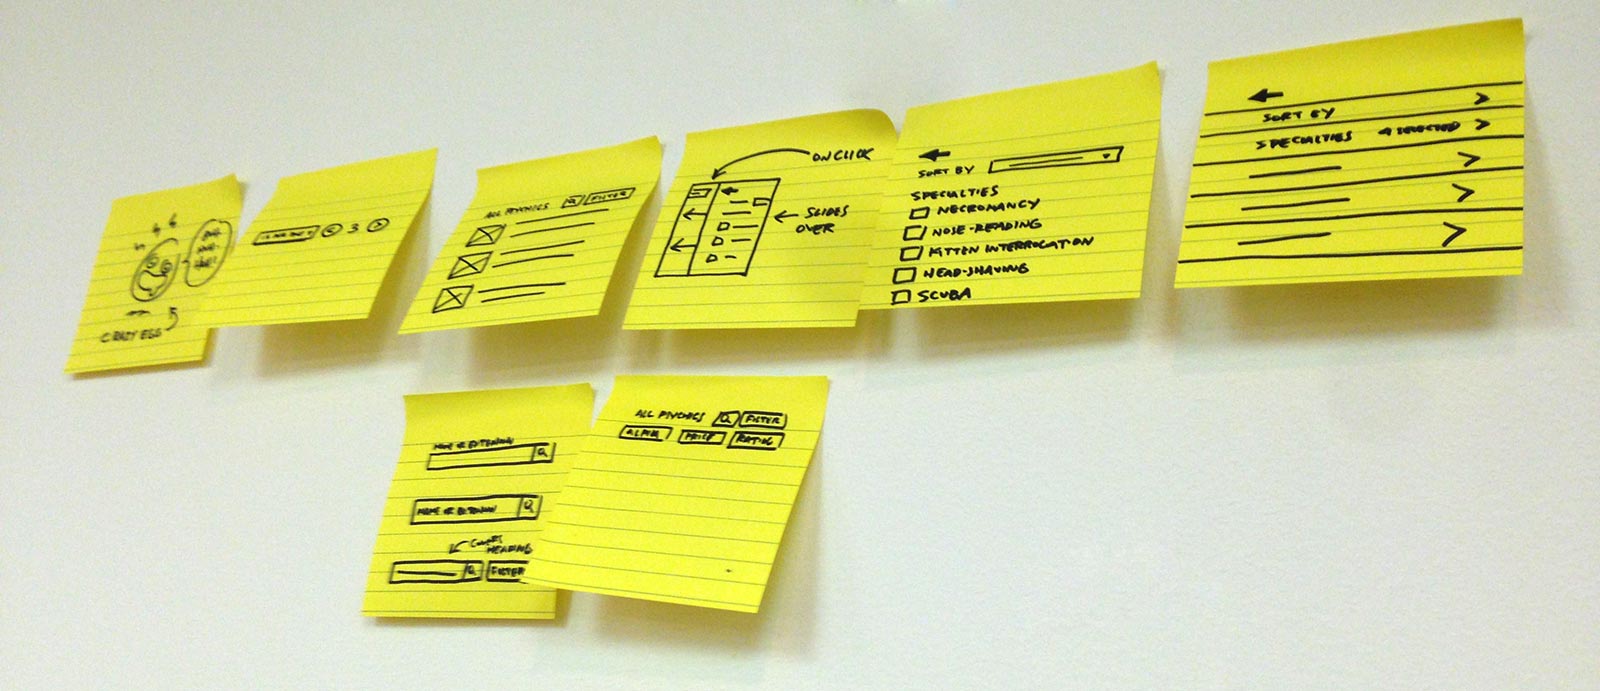 CRAZY EGG
3
ALL PSYCHICS FILTER
ON CLICK
SLIDES
OVER
SORT BY
SPECIALTIES
NECROMANCY
NOSE-READING
KITTEN INTERROGATION
HEAD-SHAVING
SCUBA
SORT BY
SPECIALTIES SELECTED
NAME OR EXTENSION
NAME OR EXTENSION
COVERS
HEADING
FILTER
ALL PSYCHICS FILTER
ALPHA PRICE RATING